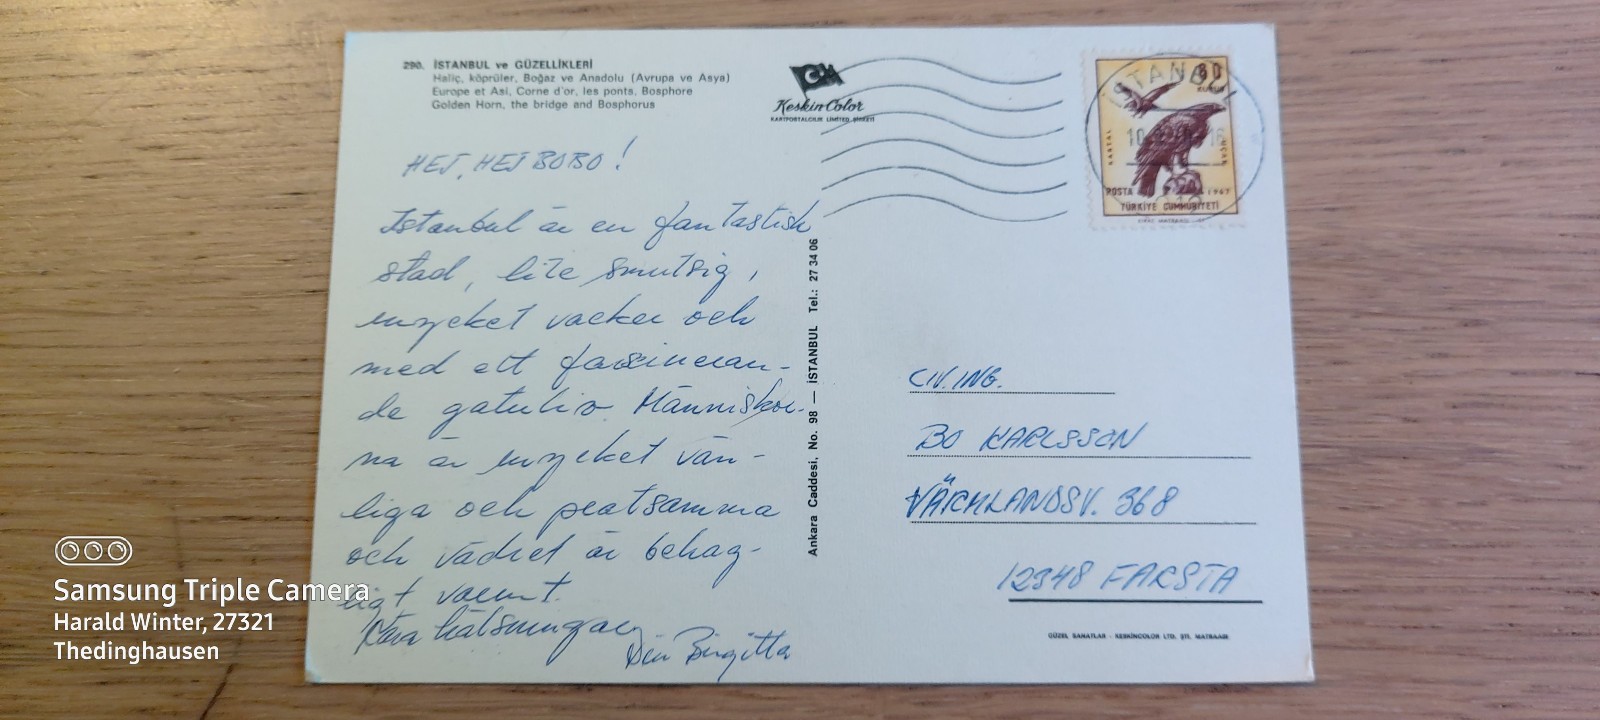 290. İSTANBUL ve GÜZELLİKLERİ
Haliç, köprüler, Boğaz ve Anadolu (Avrupa ve Asya)
Europe et Asi, Corne d'or, les ponts, Bosphore
Golden Horn, the bridge and Bosphorus
Keskin Color
KARTPOSTALCILIK LİMİTED ŞİRKETİ
HEJ, HEJ BOBO!
Istanbul är en fantastisk
stad, lite smutsig,
mycket vacker och
med ett fascineran-
de gatuliv. Människor-
na är mycket vän-
liga och pratsamma
och vädret är behag-
ligt varmt.
Kära hälsningar
Din Birgitta
Ankara Caddesi, No. 98 — İSTANBUL Tel.: 27 34 06
İSTANBUL
10
16
80
KURUŞ
KARTAL
POSTA 1967
TÜRKİYE CUMHURİYETİ
CIV. ING.
BO KARLSSON
VÄRMLANDSV. 368
12348 FARSTA
GÜZEL SANATLAR - KESKİNCOLOR LTD. ŞTİ. MATBAASI
Samsung Triple Camera
Harald Winter, 27321
Thedinghausen